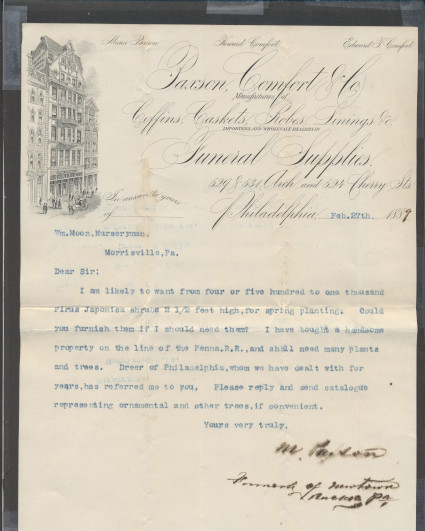 Howard Comfort. Edward T. Comfort
Paxson, Comfort & Co.
Manufacturers of
Coffins, Caskets, Robes, Linings &c.
IMPORTERS AND WHOLESALE DEALERS IN
Funeral Supplies.
529 & 531 Arch and 524 Cherry Sts.
In answer to yours
of
Philadelphia Feb. 27th. 1889
Wm. Moon, Nurseryman,
Morrisville, Pa.
Dear Sir;
I am likely to want from four or five hundred to one thousand
Pirus Japonica shrubs 2 1/2 feet high, for spring planting. Could
you furnish them if I should need them? I have bought a handsome
property on the line of the Penna. R.R., and shall need many plants
and trees. Dreer of Philadelphia, whom we have dealt with for
years, has referred me to you. Please reply and send catalogue
representing ornamental and other trees, if convenient.
Yours very truly,
M. Paxson
Formerly of Newtown
Bucks Pa.